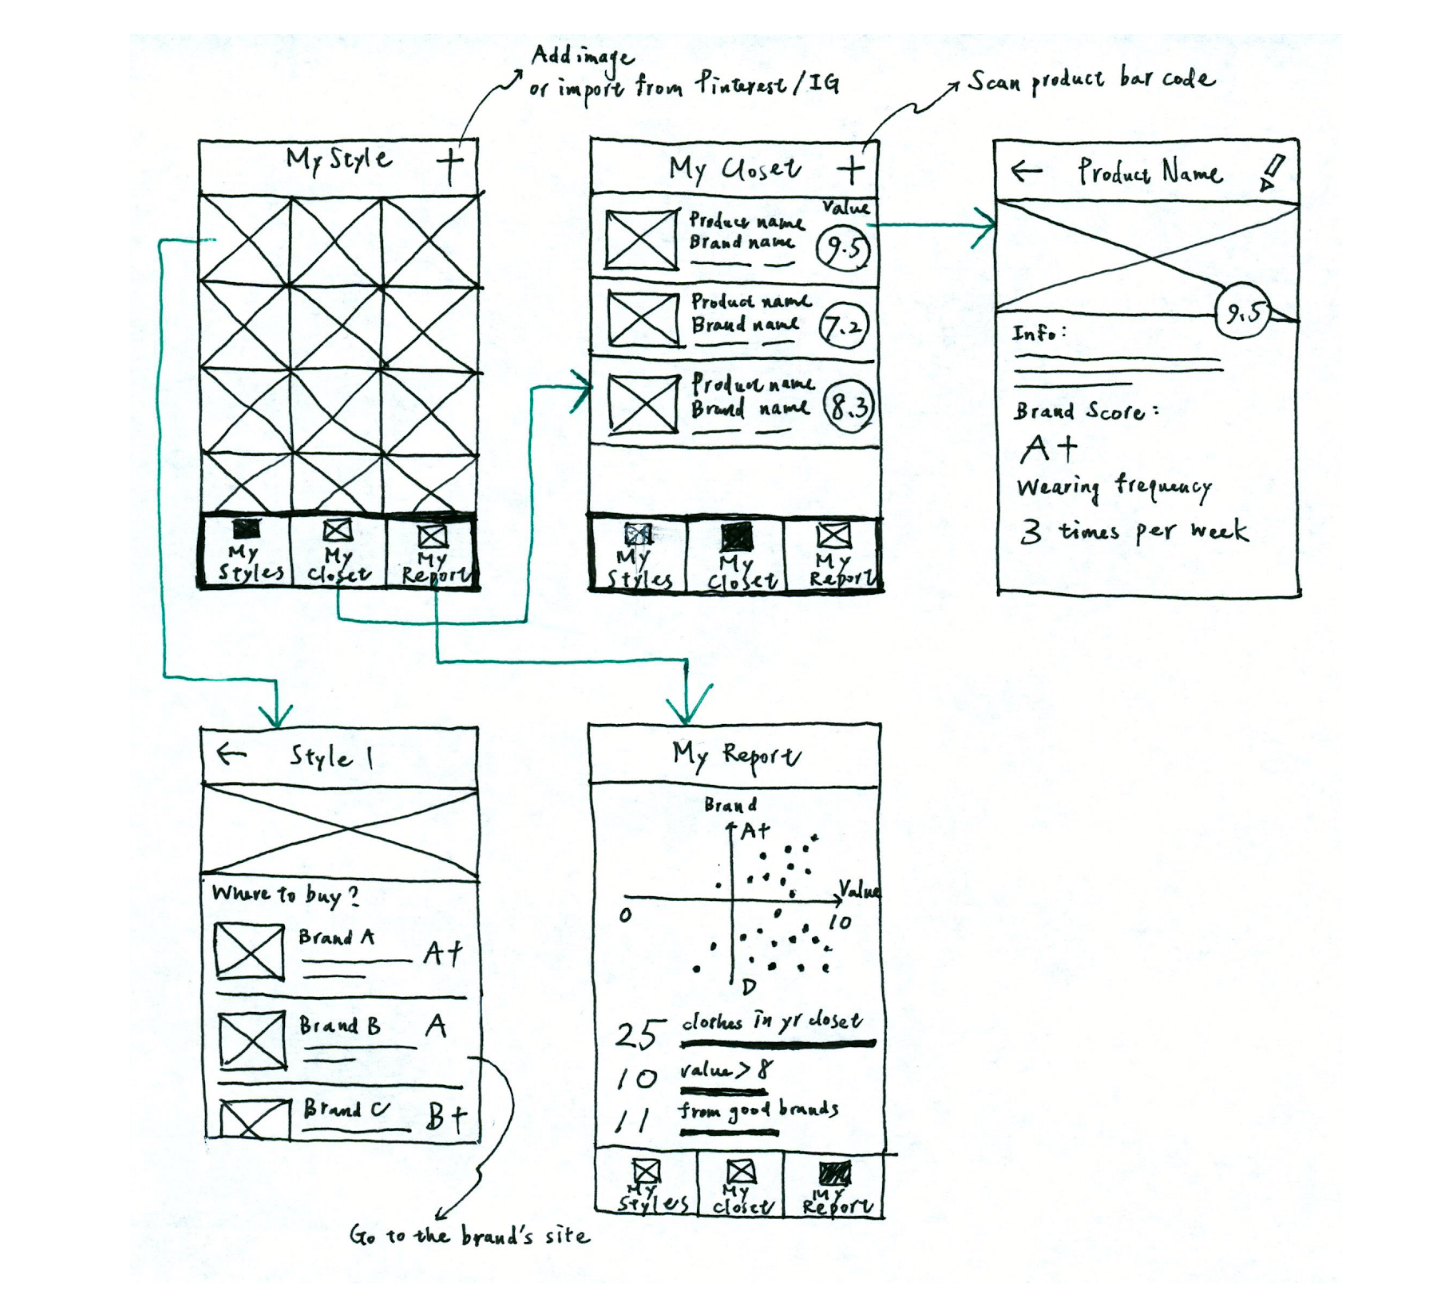 Add image
or import from Pinterest/IG
Scan product bar code
My Style +
My Styles
My Closet
My Report
My Closet +
value
Product name
Brand name
9.5
Product name
Brand name
7.2
Product name
Brand name
8.3
My Styles
My Closet
My Report
← Product Name
9.5
Info:
Brand Score:
A+
Wearing frequency
3 times per week
← Style 1
Where to buy?
Brand A
A+
Brand B
A
Brand C
B+
Go to the brand's site
My Report
Brand
A+
Value
0
10
D
25 clothes in yr closet
10 value > 8
11 from good brands
My Styles
My Closet
My Report